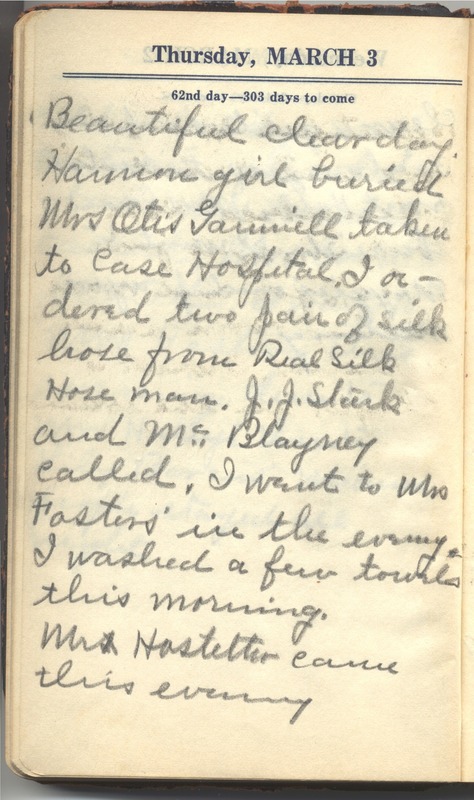 Thursday, MARCH 3
62nd day—303 days to come
Beautiful clear day.
Hamon girl buried
Mrs Otis Gamiell taken
to Case Hospital. I or-
dered two pair of silk
hose from Real Silk
Hose man. J. J. Stark
and Mc Blayney
called. I went to Mrs
Fosters' in the evening.
I washed a few towels
this morning.
Mrs Hostetter came
this evening